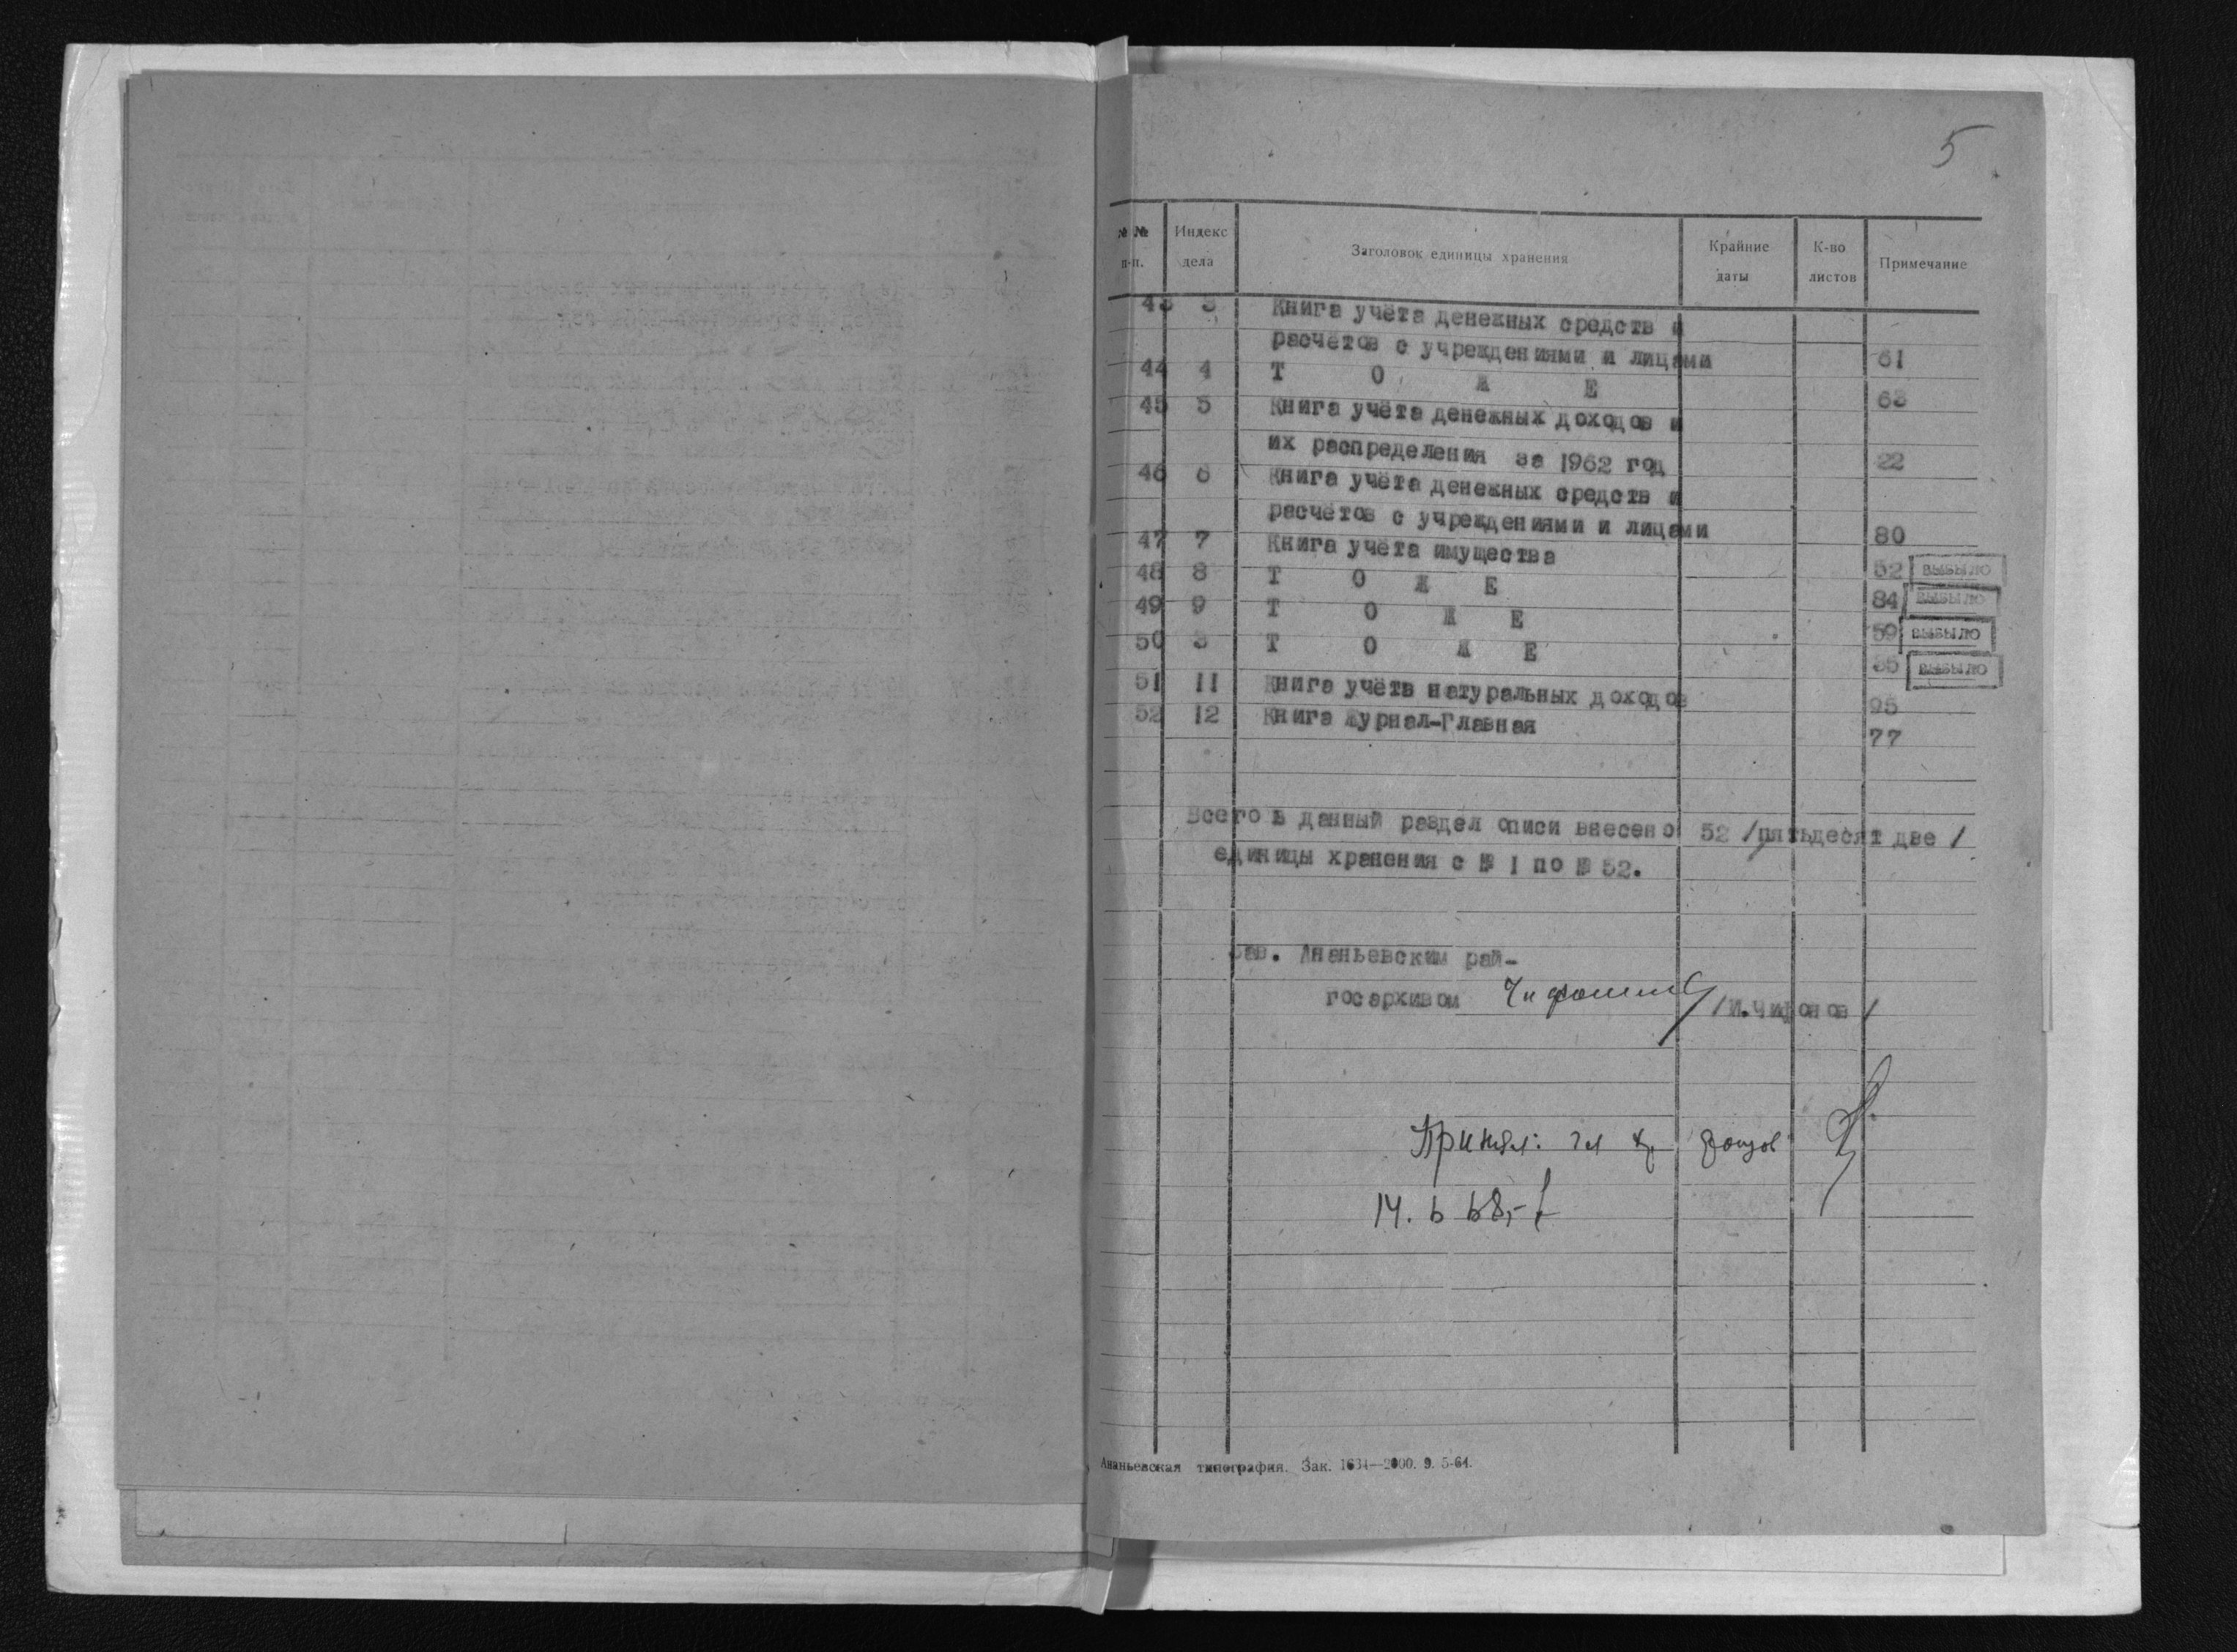 5
№ № п-п. Индекс дела Заголовок единицы хранения Крайние даты К-во листов Примечание
43 3 Книга учёта денежных средств и
расчётов с учреждениями и лицами 61
44 4 Т О Ж Е 63
45 5 Книга учёта денежных доходов и
их распределения за 1962 год 22
46 6 Книга учёта денежных средств и
расчётов с учреждениями и лицами 80
47 7 Книга учёта имущества 52 ВЫБЫЛО
48 8 Т О Ж Е 84 ВЫБЫЛО
49 9 Т О Ж Е 59 ВЫБЫЛО
50 3 Т О Ж Е 35 ВЫБЫЛО
51 11 Книга учёта натуральных доходов 25
52 12 Книга Журнал-Главная 77
Всего в данный раздел описи внесено 52 /пятьдесят две /
единицы хранения с № 1 по № 52.
Зав. Ананьевским рай-
госархивом /И.Чифонов /
Принял: гл хр фондов
14. 6 68,-
Ананьевская типография. Зак. 1634—2000. 9. 5-64.